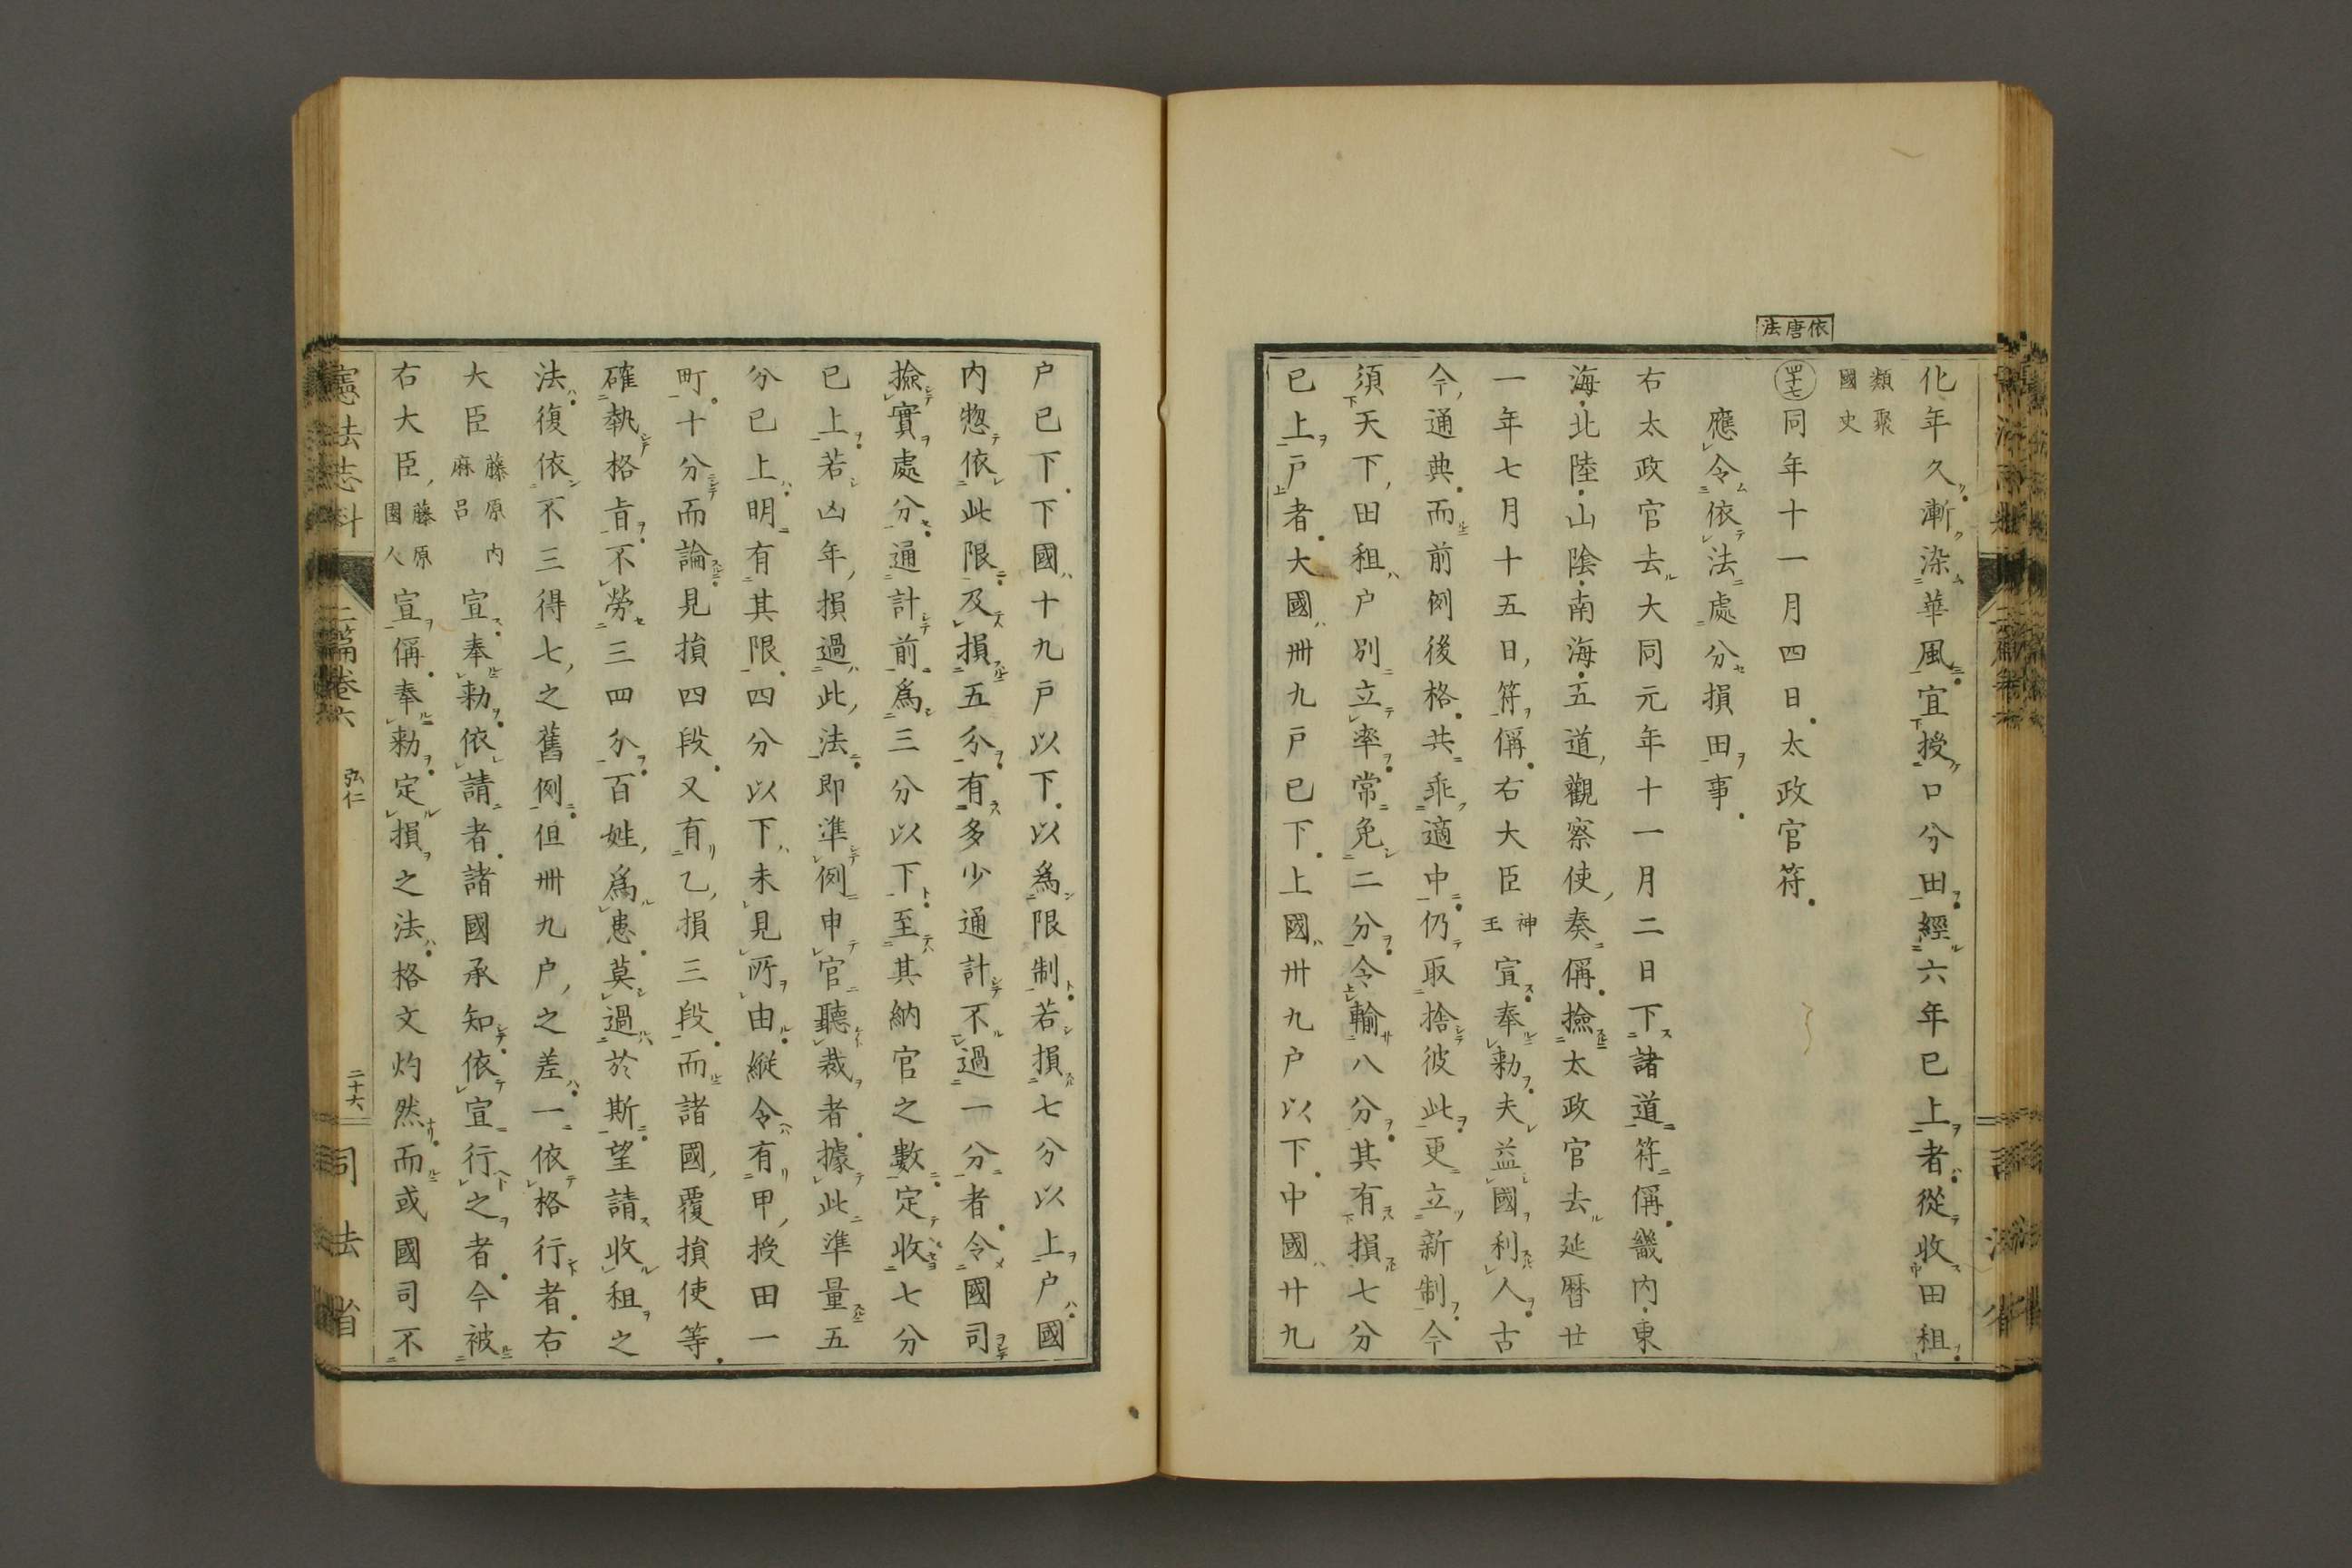 依唐法
化年久漸染華風宜授口分田經六年已上者從收田租
類聚
國史
四十七同年十一月四日太政官符
應令依法處分損田事
右太政官去大同元年十一月二日下諸道符偁畿内東
海北陸山陰南海五道觀察使奏偁撿太政官去延曆廿
一年七月十五日符偁右大臣神王宣奉勅夫益國利人古
今通典而前例後格共乖適中仍取捨彼此更立新制今
須天下田租戸別立率常免二分令輸八分其有損七分
已上戸者大國卌九戸已下上國卅九戸以下中國廿九
戸已下下國十九戸以下以爲限制若損七分以上戸國
内惣依此限及損五分有多少通計不過一分者令國司
撿實處分通計前爲三分以下至其納官之數定收七分
已上若凶年損過此法即準例申官聽裁者據此準量五
分已上明有其限四分以下未見所由縱令有甲授田一
町十分而論見損四段又有乙損三段而諸國覆損使等
確執格旨不勞三四分百姓爲患莫過於斯望請收租之
法復依不三得七之舊例但卌九戸之差一依格行者右
大臣藤原内麻呂宣奉勅依請者諸國承知依宣行之者今被
右大臣藤原園人宣偁奉勅定損之法格文灼然而或國司不
憲法志料 二篇卷六 弘仁 二十六 司法省